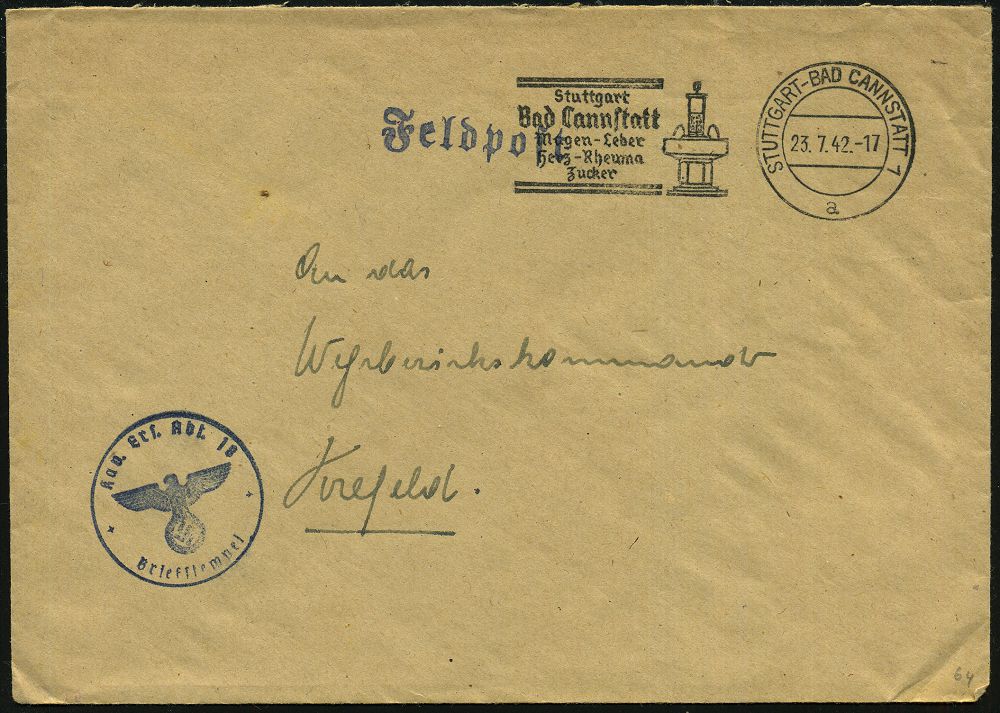 Feldpost
Stuttgart
Bad Cannstatt
Magen-Leber
Herz-Rheuma
Zucker
STUTTGART-BAD CANNSTATT 1
23.7.42.-17
a
An das
Wehrbezirkskommando
Krefeld.
Kav. Ers. Abt. 18
Briefstempel
64